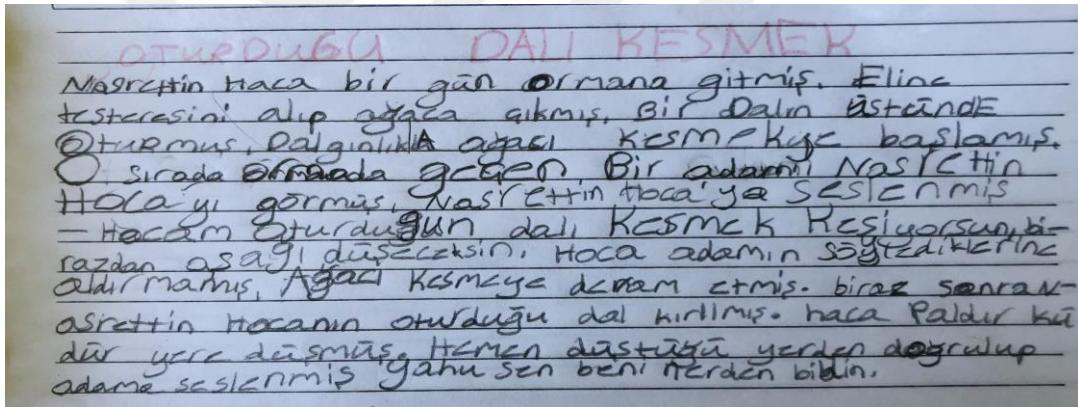 OTURDUĞU DALI KESMEK
Nasrettin Haca bir gün Ormana gitmiş. Eline
testeresini alıp ağaca çıkmış, Bir Dalın üstündE
Oturmuş, Dalgınlıkla ağacı Kesmekye başlamış.
O sırada ormaada geçen Bir adam Nasrettin
Hoca'yı görmüş, Nasrettin Hoca'ya seslenmiş
- Hocam oturduğun dalı Kesmek Kesiyorsun, bi-
razdan aşağı düşeceksin. Hoca adamın söyledediklerine
aldırmamış, Ağacı Kesmeye devam etmiş. biraz sonra N-
asrettin Hocanın oturduğu dal kırılmış. haca Paldır kü
dür yere düşmüş. Hemen düştüğü yerden doğrulup
adama seslenmiş yahu sen beni nerden bildin.